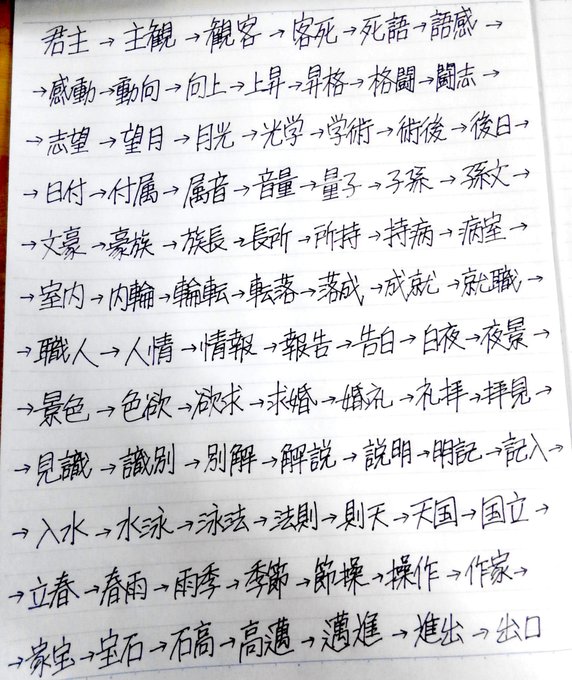 君主→主観→観客→客死→死語→語感→
→感動→動向→向上→上昇→昇格→格闘→闘志→
→志望→望月→月光→光学→学術→術後→後日→
→日付→付属→属音→音量→量子→子孫→孫文→
→文豪→豪族→族長→長所→所持→持病→病室→
→室内→内輪→輪転→転落→落成→成就→就職→
→職人→人情→情報→報告→告白→白夜→夜景→
→景色→色欲→欲求→求婚→婚礼→礼拝→拝見→
→見識→識別→別解→解説→説明→明記→記入→
→入水→水泳→泳法→法則→則天→天国→国立→
→立春→春雨→雨季→季節→節操→操作→作家→
→家宝→宝石→石高→高邁→邁進→進出→出口